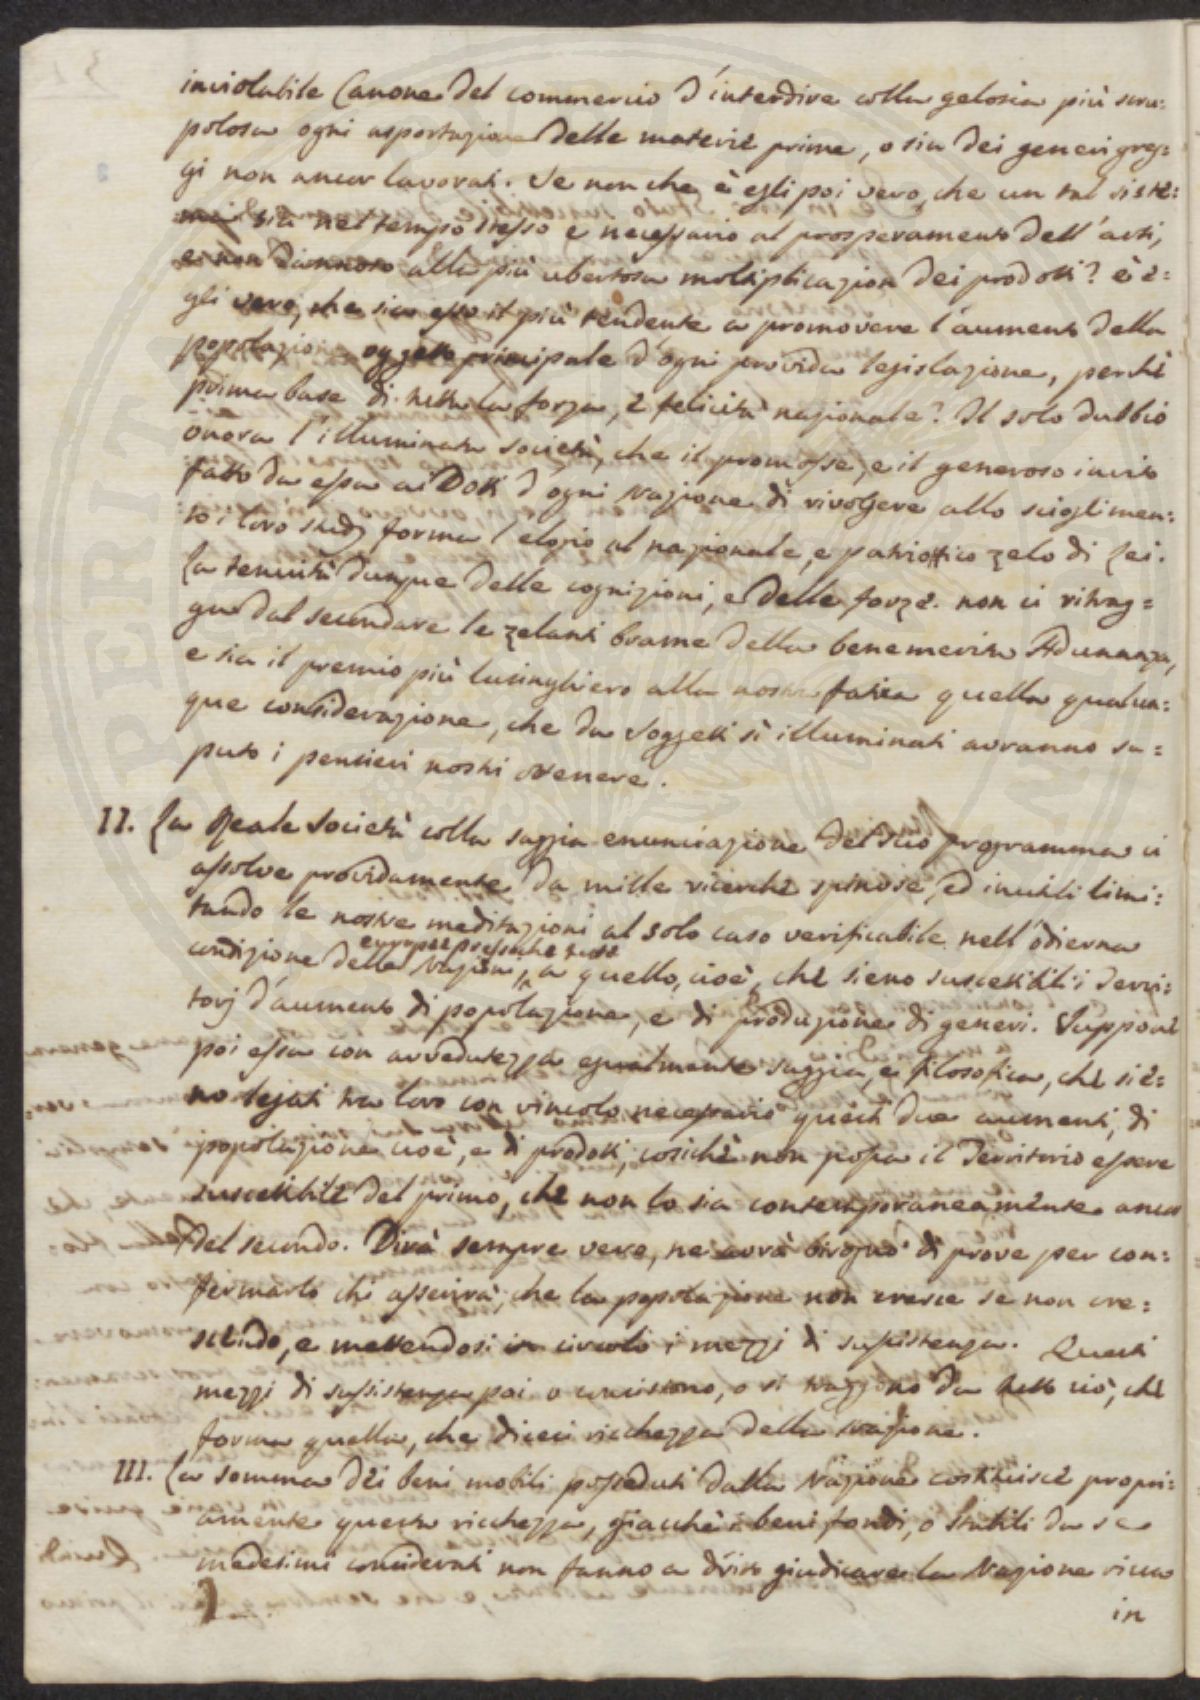 inviolabile Canone del commercio d'interdire colla gelosia più scru:
polosa ogni asportazione delle materie prime, o sia dei generi greg:
gi non ancor lavorati. Se non che è egli poi vero, che un tal siste:
ma sia nel tempo stesso e necessario al prosperamento dell'arti,
e non dannoso alla più ubertosa moltiplicazion dei prodotti? è e:
gli vero, che sia esso il più tendente a promovere l'aumento della
popolazio oggetto principale d'ogni provida legislazione, perchè
prima base di tutta la forza, e felicità nazionale? Il solo dubbio
onora l'illuminata società, che il promosse, e il generoso invito
fatto da essa ai Dotti d'ogni Nazione di rivolgere allo scioglimen:
to i loro studj forma l'elogio al nazionale, e patriottico zelo di Lei.
La tenuità dunque delle cognizioni, e delle forze non ci ritrag=
ga dal secondare le zelanti brame della benemerita Adunanza,
e sia il premio più lusinghiero alla nostra fatica quella qualun:
que considerazione, che da Soggetti sì illuminati avranno sa=
puto i pensieri nostri ottenere.
II. La Reale Società colla saggia enunciazione del suo programma ci
assolve providamente da mille ricerche spinose, ed inutili limi:
tando le nostre meditazioni al solo caso verificabile nell'odierna
europee pressochè tutte
condizione delle Nazioni, a quello, cioè, che sieno suscettibili i Terri:
torj d'aumento di popolazione, e di produzione di generi. Suppone
poi essa con avvedutezza egualmente saggia, e filosofica, che sie=
no legati tra loro con vincolo necessario questi due aumenti, di
popolazione cioè, e di prodotti, cosichè non possa il Territorio essere
suscettibile del primo, che non lo sia contemporaneamente ancor
del secondo. Dirà sempre vero, ne avrà bisogno di prove per con:
fermarlo chi asserirà, che la popolazione non cresce se non cre:
scendo, e mettendosi in circolo i mezzi di sussistenza. Questi
mezzi di sussistenza poi o consistono, o si traggono da tutto ciò, che
forma quella, che dicesi ricchezza della Nazione.
III. La somma dei beni mobili posseduti dalla Nazione costituisce propri:
amente questa ricchezza, giacchè i beni fondi, o Stabili da se
medesimi considerati non fanno a dritto giudicare la Nazione ricca
in